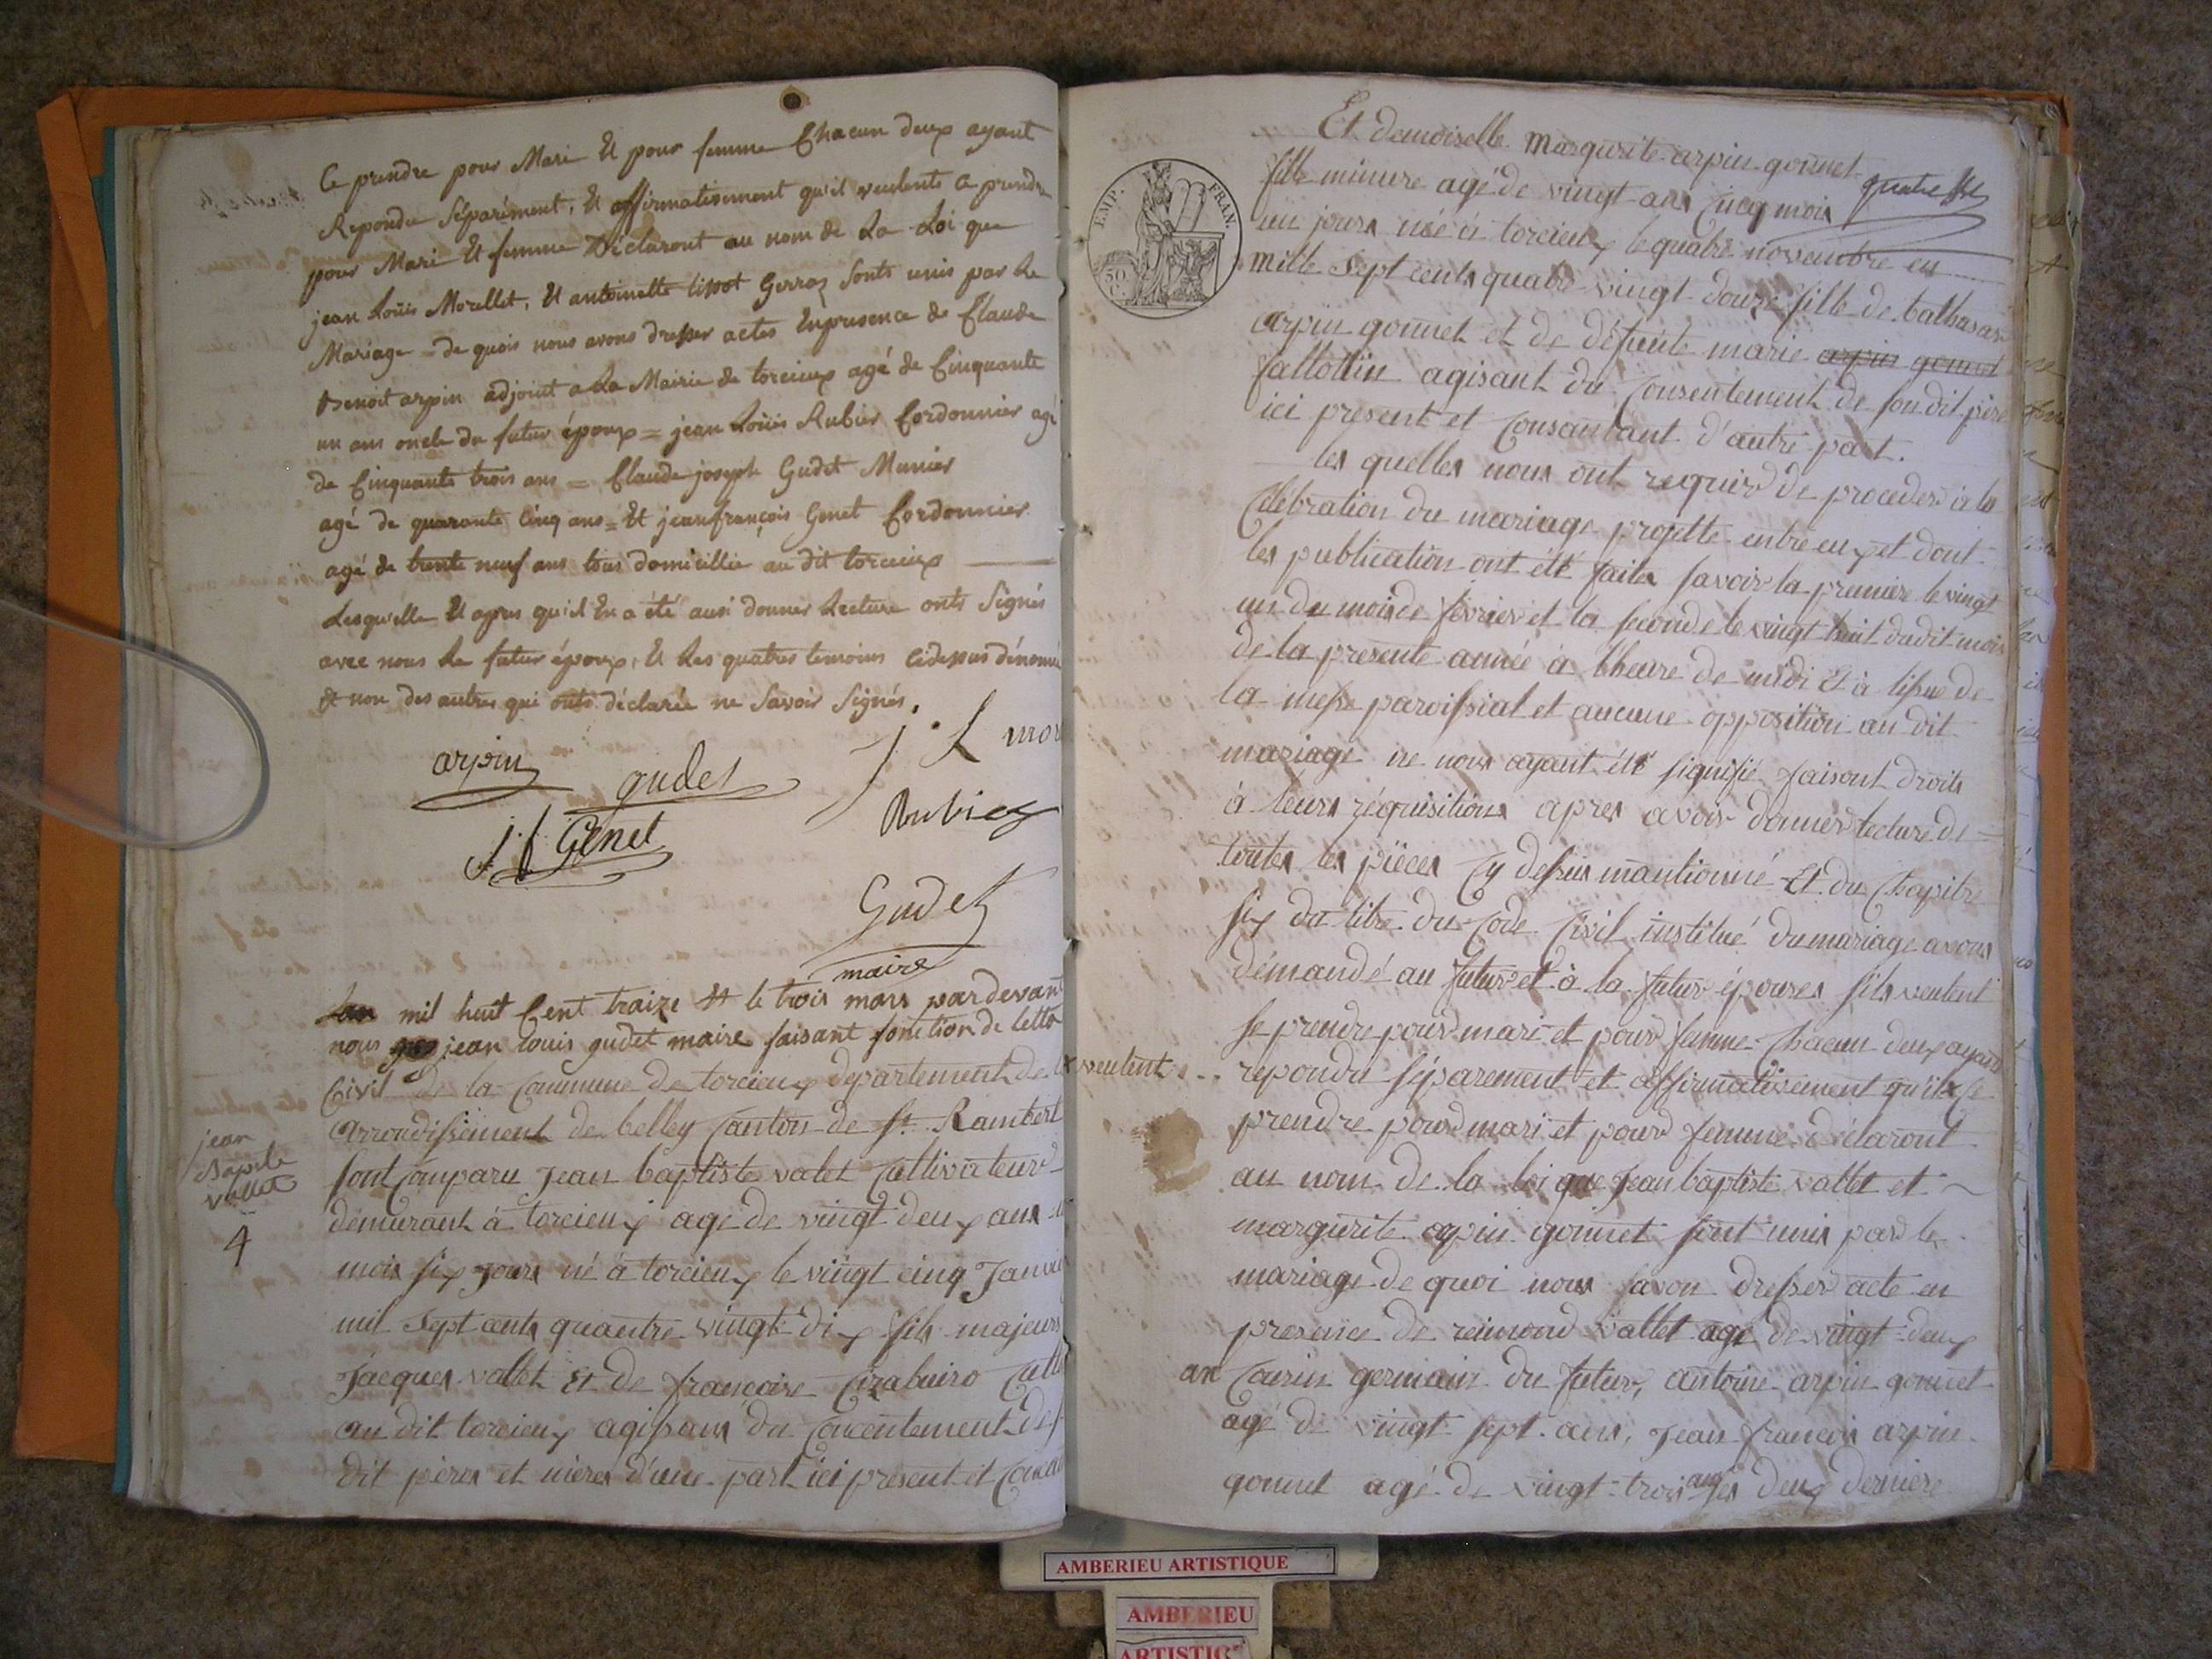 Ce prendre pour Mari Et pour femme Chacun deux ayant
Repondu Séparément, Et affirmativement qu'il veulents ce prendre
pour Mari Et femme Déclaront au nom de La Loi que
jean Loüis Morellet, Et antoinette tissot Gerraz Sonts unis par Le
Mariage = de quois nous avons dresser actes Enpresence de Claude
Benoit arpin adjoint a La Mairie de torcieux agé de Cinquante
un ans oncle du futur époux = jean Loüis Rubier Cordonnier agé
de Cinquante trois ans = Claude joseph Gudet Munier
agé de quarante Cinq ans = Et jeanfrançois Genet Cordonnier
agé de trente neuf ans tous domicillié au dit torcieux
Lesquelle Et apres qu'il En a été ausi donner Lecture onts Signés
avec nous Le futur époux, Et Les quatres temoins Cidessus dénommé
Et non des autres qui onts déclarée ne Savoir Signés.
J. L mor
arpin gudet
Rubier
j. f Genet
Gudet
maire
Lan mil huit Cent traize Et le trois mars pardevant
nous jean Louis gudet maire faisant fonction de letta
Civil de la Commune de torcieux departement de
arrondissement de belley Canton de St Rambert
sont Comparu Jean baptiste valet Cultivateur
demurant à torcieux agé de vingt deux ans
mois six Jours né à torcieux le vingt cinq Janvier
mil Sept cents quantre vingt dix fils majeurs
Jacques vallet Et de françoise
au dit torcieux agissant du Concentement des
dit péres et méres d'une part ici présent et
jean
Bapste
vallet
4
EMP. FRAN.
50 C.
Et demoiselle Margurite arpin gonnet
fille minure agé de vingt ans Cincq mois quatre
un jours née à torcieux le quatre novembre en
mille Sept cents quatre vingt douze fille de balthasar
arpin gonnet et de défunte marie arpin gonnet
fallottin agisant du Consentement de son dit pére
ici présent et Consantant d'autre part.
les quelles nous ont requier de proceder à la
Célébration du mariage projetté entre eux et dont
les publication ont été faites savoir la premiere le vingt
un du mois de février et la seconde le vingt huit dudit mois
de la presente année à lheure de midi Et à lissue de
la messe paroissial et aucune opposition au dit
mariage ne nous ayant été signifié faisont droits
à leurs réquisitions apres avoir donner lecture de =
toutes les piéces Cy dessus mantionné Et du Chapitre
six du titre du Code Civil institué du mariage avons
démandé au futur et à la futur épouses sils veulent
se prendre pour mari et pour femme Chacun deux ayant
veulent répondu séparement et affirmativement qu'ils se
prendre pour mari et pour femme déclaront
au nom de la loi que Jean baptiste vallet et
margurite arpin gonnet sont unis par le
mariage de quoi nous avon dresser acte en
presence de reimond vallet agé de vingt deux
an Cousin germain du futur, antoine arpin gonnet
agé de vingt sept ans, Jean françois arpin
gonnet agé de vingt trois ans les deux derniere
AMBERIEU ARTISTIQUE
AMBERIEU
ARTISTIQ